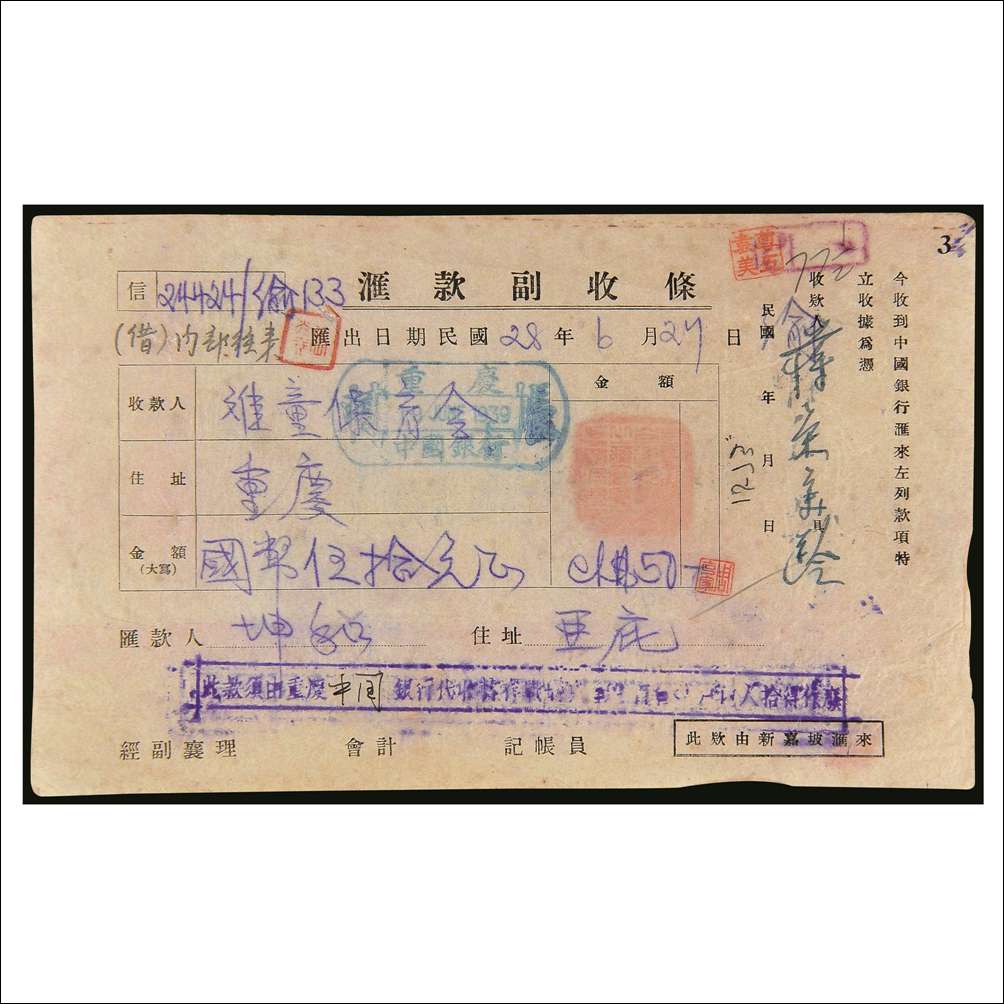 3
滙款副收條
信 24424/渝133
(借)內部往來
滙出日期民國28年6月27日
金額
收款人 难童保育会
重慶
中國銀行
住址 重慶
金額(大寫) 國幣伍拾元正 50
滙款人 坤
住址 亞庇
此款須由重慶中国銀行代收
人拾得作廢
經副襄理 會計 記帳員
此欵由新嘉坡滙來
今收到中國銀行滙來左列款項特
立收據爲憑
收欵人 具
民國 年 月 日